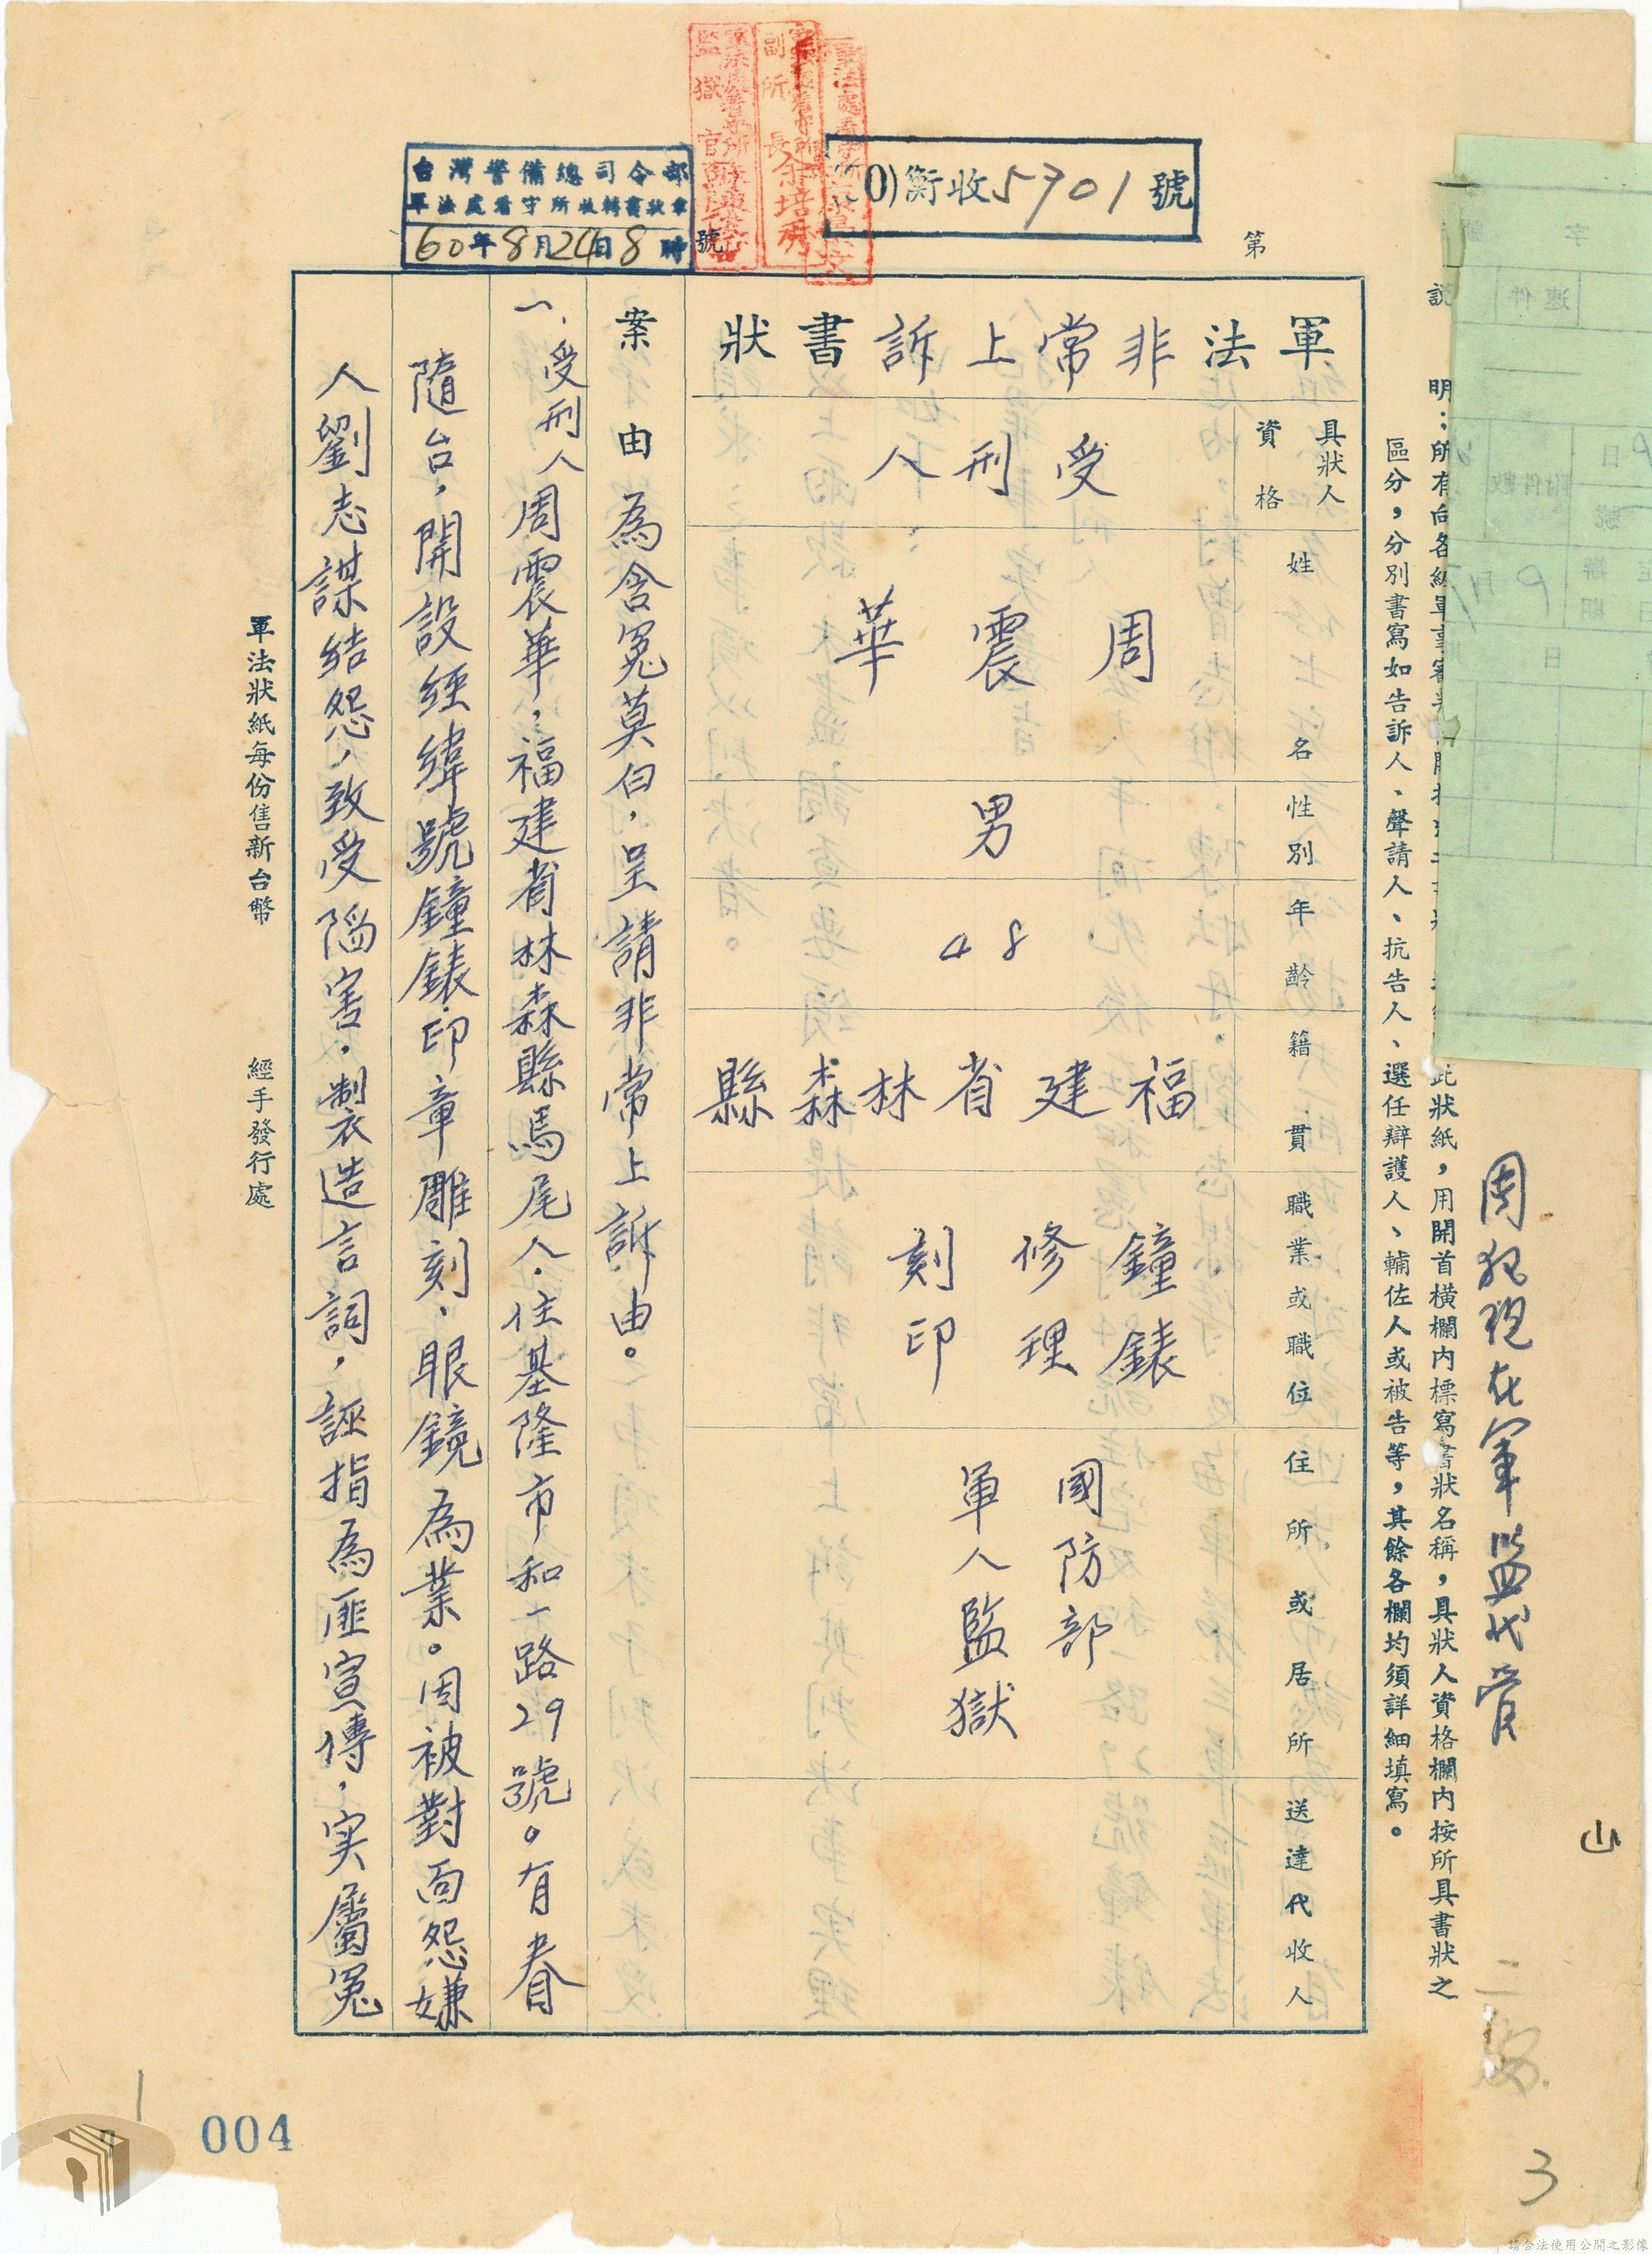 台灣警備總司令部
軍法處看守所收轉書狀章
60年8月24日8時
0)衡收5701號
第
號
軍法非常上訴書狀
具狀人資格
受刑人
姓名
周震華
性別
男
年齡
48
籍貫
福建省林森縣
職業或職位
鐘錶
修理
刻印
住所或居所
國防部
軍人監獄
送達代收人
案由 為含冤莫白，呈請非常上訴由。
一、受刑人周震華，福建省林森縣馬尾人．住基隆市和一路29號。有眷
隨台，開設經緯號鐘錶．印章雕刻、眼鏡為業。因被對面怨嫌
人劉志謀結怨，致受陷害，製造言詞，誣指為匪宣傳，实屬冤
軍法狀紙每份售新台幣
經手發行處
明：所有向各級軍事審 此狀紙，用開首橫欄內標寫書狀名稱，具狀人資格欄內按所具書狀之
區分，分別書寫如告訴人、聲請人、抗告人、選任辯護人、輔佐人或被告等，其餘各欄均須詳細填寫。
周犯現在軍監代管
山
3
004
請合法使用公開之影像